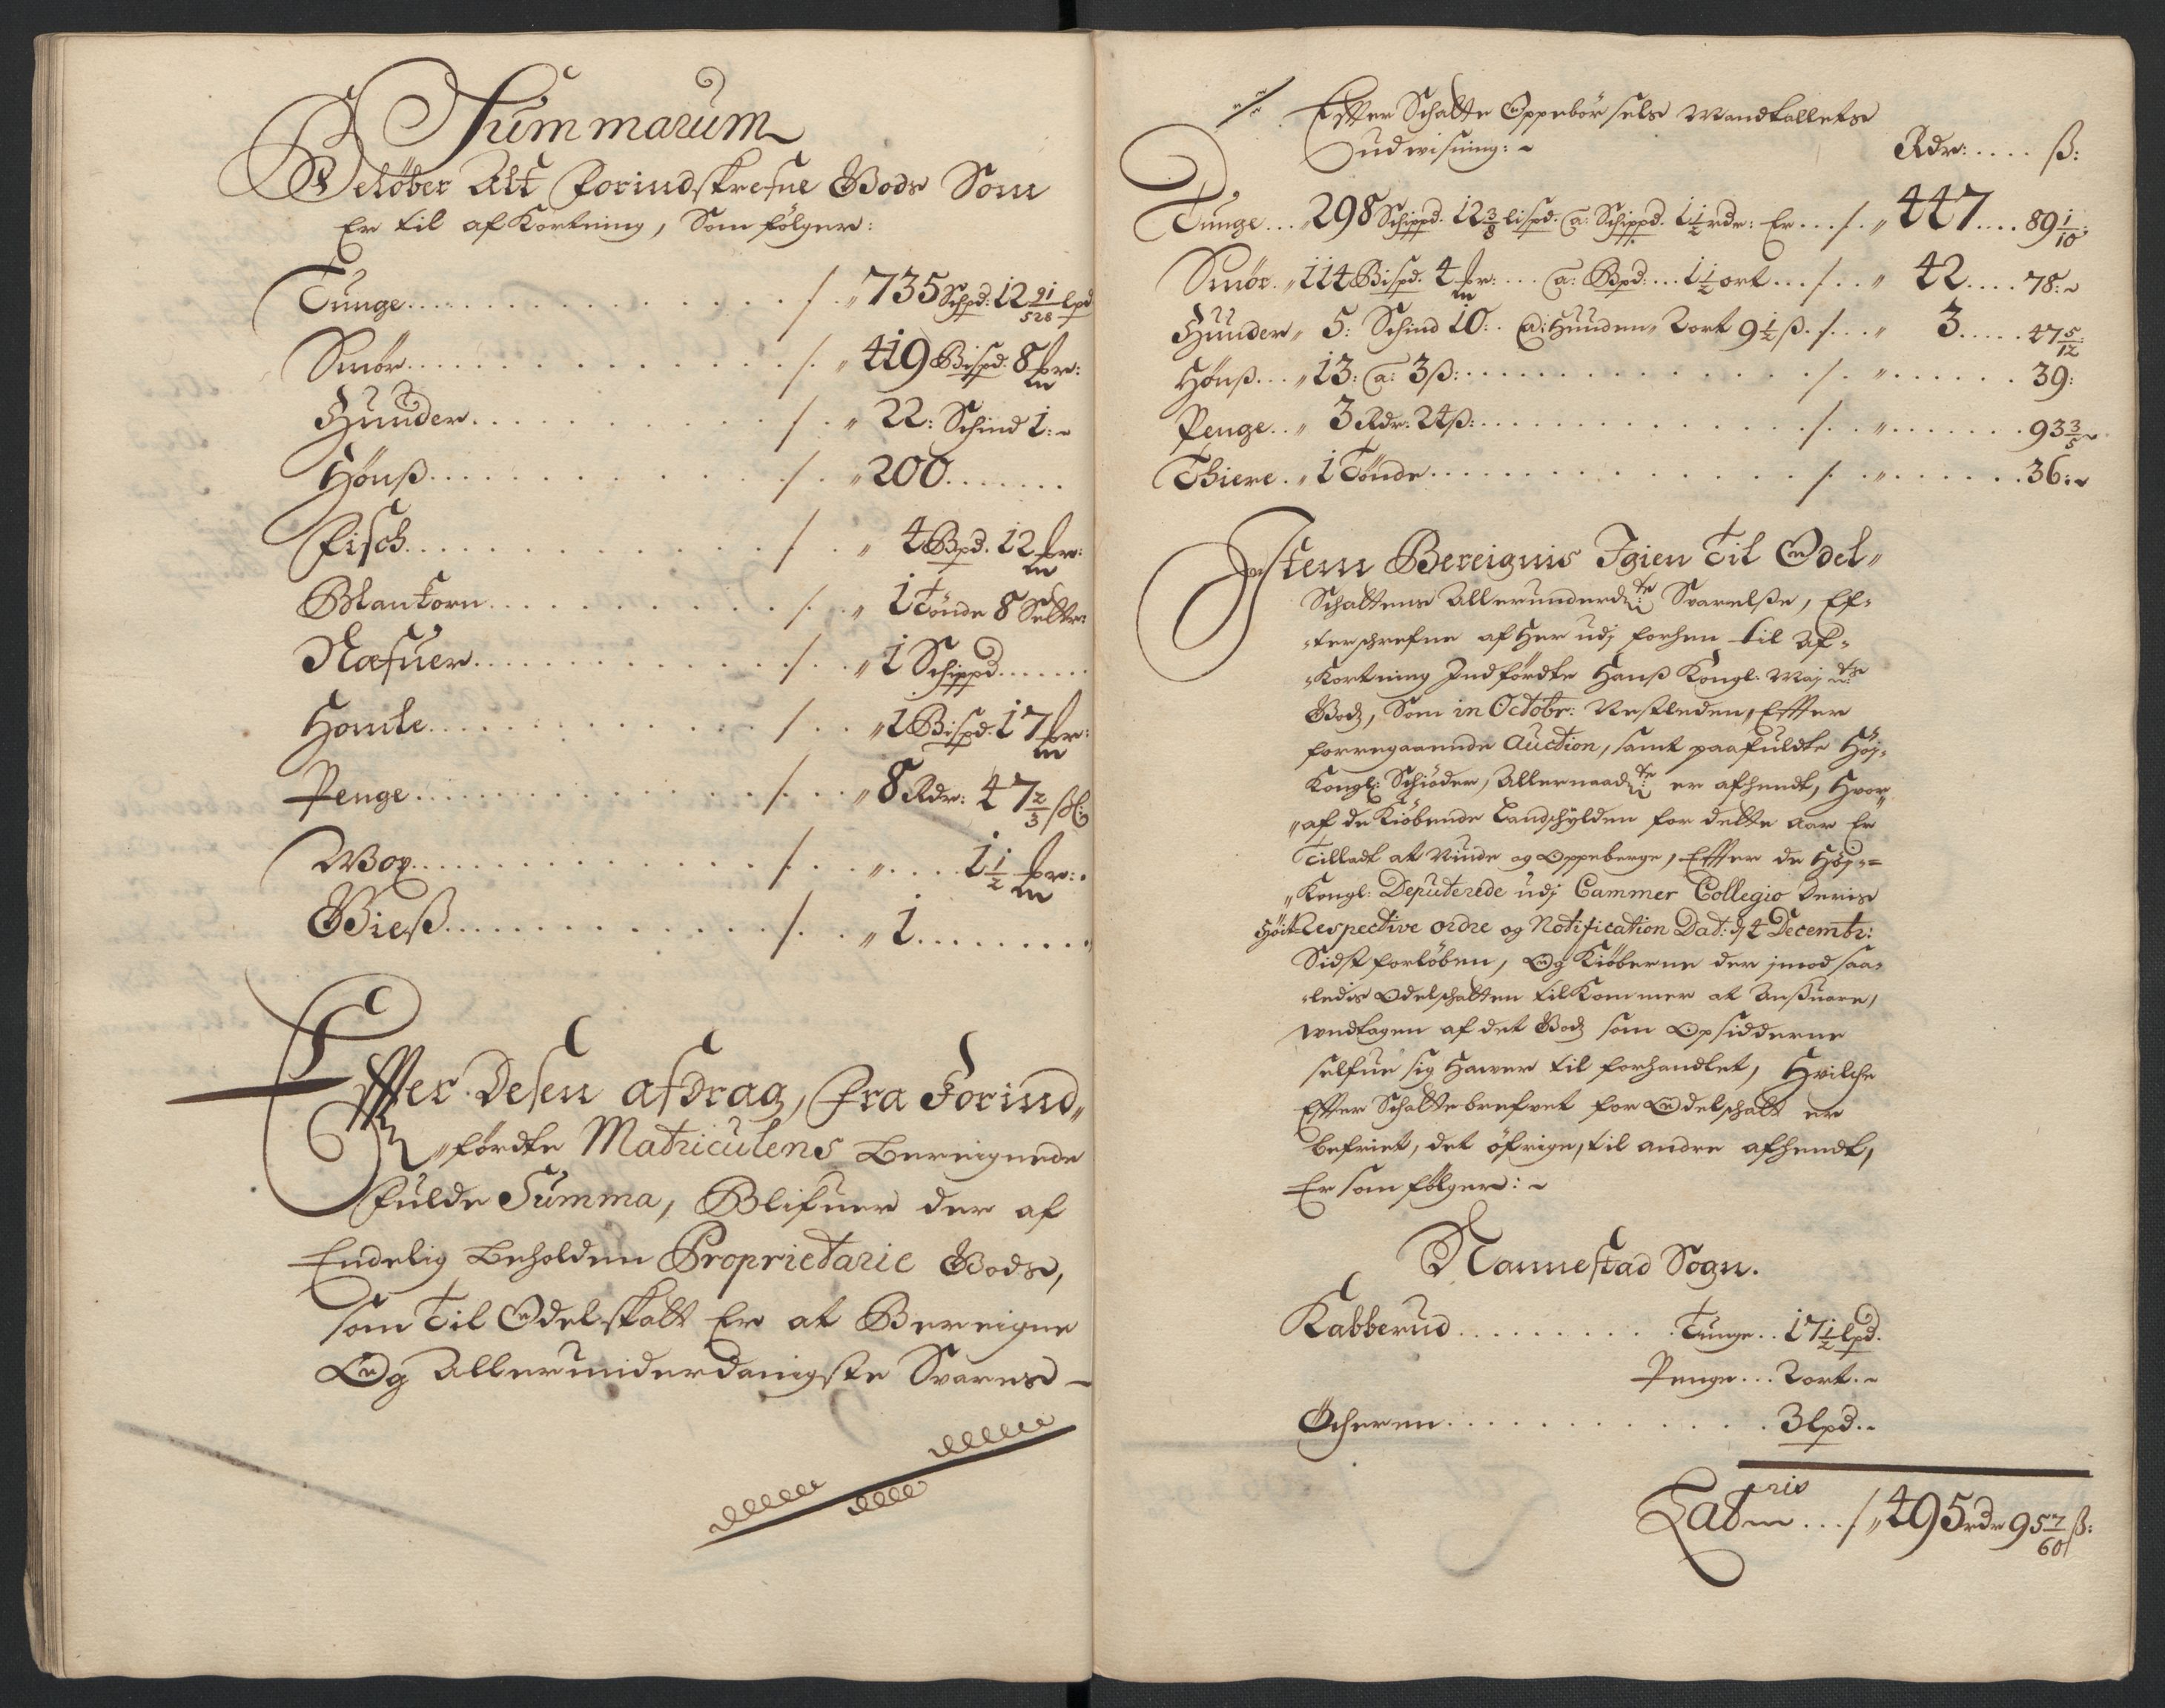 Summarum
Beløber Alt forindskrefne Godz Som
Er til afKortning, Som følger:
Tunge ... / „ 735 Schpd: 12 91/528 lpd
Smør ... / „ 419 Bispd. 8 mr:
Huuder ... / „ 22: Schind 1:
Hønß ... / „ 200
Fisch ... / „ 4 Bpd. 12 mr:
Blankorn ... / „ 1 Tønde 8 Settr:
Næfuer ... / „ 1 Schippd
Homle ... / „ 1 Bispd. 17 mr:
Penge ... / „ 8 Rdr: 47 2/3 ß:
Wox ... / „ 1 1/2 mr:
Gieß ... / „ 1
Effter Desen afdrag, fra Forind„
„førdte Matriculens Bereignede
fulde Summa, Blifuer der af
Endelig Beholden Proprietarie Godz,
som Til Odelskatt Er at Bereigne
Og Allerunderdanigste Svares
Effter Schatte Oppebørsels Mandtallets
udwisning:
Rdr: .... ß:
Tunge ... „ 298 Schippd. 12 3/8 lispd. a: Schippd. 1 1/2 rdr: Er ... / . „ 447 .... 89 1/10:
Smør. „ 114 Bispd. 4 mr: ... a: Bpd: ... 1 1/2 ort ... / . . „ 42 .... 78:
Huuder „ 5: Schind 10: . a: Huuden „ 2 ort 9 1/2 ß. / . . „ 3 ..... 47 5/12:
Hønß ... „ 13: a: 3 ß: ... / . „ ...... 39:
Penge .. „ 3 Rdr: 24 ß: ... / . . „ ....... 93 3/5
Thiere . „ 1 Tønde ... / . . „ ...... 36:
Item Bereignis Igien Til Odel„
Schattens Allerunderd:te Svarelße, Ef:
:terschrefne af Her udj forhen til Af:
:Kortning Indførdte Hanß Kongl: Maj:ts
Godz, Som in Octobr: Nestleden, Effter
forregaaende Auction, samt paafuldte Høj:
Kongl: Schiøder, Allernaad:te er afhendt, Hvor„
„af de Kiøbende Landschylden for dette Aar Er
Tilladt at Niude og Oppeberge, Effter de Høj:=
„Kongl: Deputerede udj Cammer Collegio Deris
Høit Respective ordre og Notification Dat: d 4 Decembr:
Sidst forløben, Og Kiøberne der jmod saa:
:ledis Odelschatten tilkommer at Anßvare,
Undtagen af det Godz som Opsidderne
selfue sig Hawer til forhandlet, Hvilche
Effter Schattebrefvet for Odelschatt er
befriet, det øfrige, til andre afhendt,
Er som følger:
Nannestad Sogn.
Kabberud ......... Tunge .. 17 1/2 lpd.
Penge ... 2 ort.
Ocheren ............ 3 lpd.
Lateris ... / „ 495 rdr 95 7/60 ß: